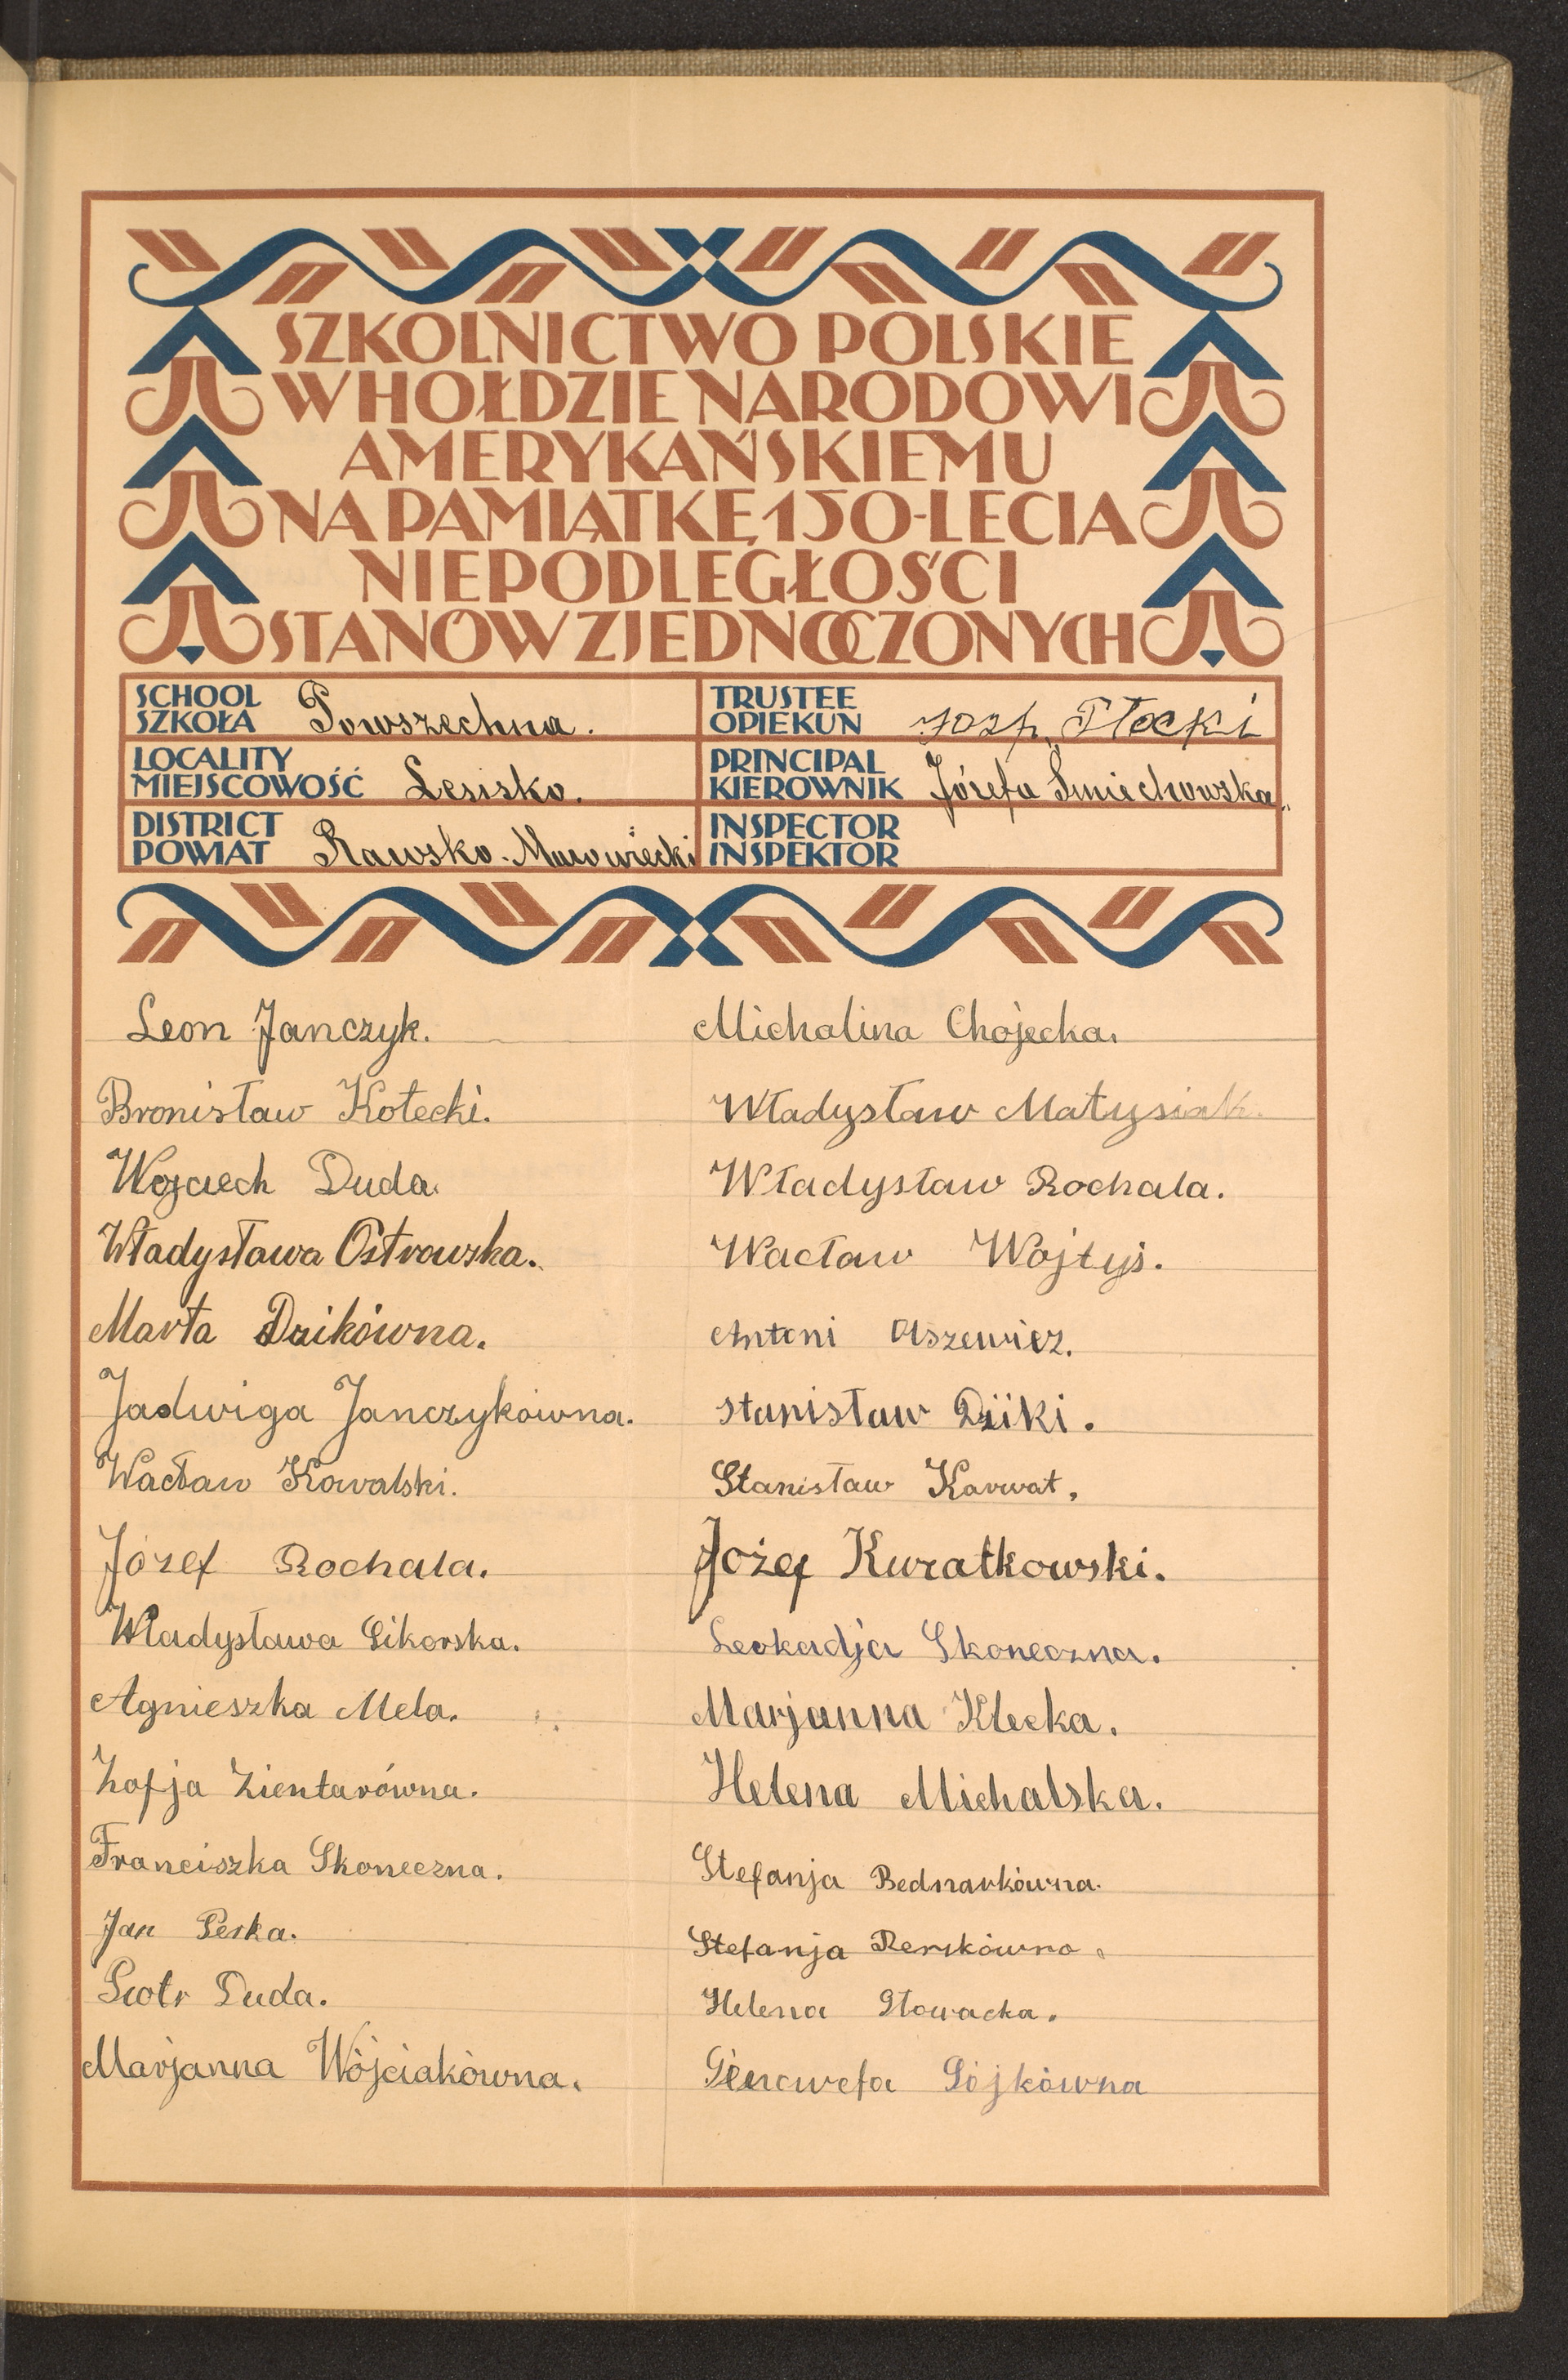 SZKOLNICTWO POLSKIE
W HOŁDZIE NARODOWI
AMERYKAŃSKIEMU
NA PAMIĄTKĘ 150-LECIA
NIEPODLEGŁOŚCI
STANÓW ZJEDNOCZONYCH
SCHOOL
SZKOŁA Powszechna.
TRUSTEE
OPIEKUN Płocki
LOCALITY
MIEJSCOWOŚĆ Lesisko.
PRINCIPAL
KIEROWNIK Józefa Śmiechowska.
DISTRICT
POWIAT Rawsko-Mazowiecki
INSPECTOR
INSPEKTOR
Leon Janczyk.
Bronisław Kotecki.
Wojciech Duda.
Władysława Ostrowska.
Marta Dzikówna.
Jadwiga Janczykówna.
Wacław Kowalski.
Józef Rochala.
Władysława Sikorska.
Agnieszka Mela.
Zofja Zientarówna.
Franciszka Skoneczna.
Jan Perka.
Piotr Duda.
Marjanna Wójciakówna.
Michalina Chojecka.
Władysław Matysiak.
Władysław Rochala.
Wacław Wojtyś.
Antoni
Stanisław Dziki.
Stanisław Karwat.
Józef Kuratkowski.
Leokadja Skoneczna.
Marjanna Klecka.
Helena Michalska.
Stefanja Bednarkówna.
Stefanja
Helena Słowacka.
Sójkówna